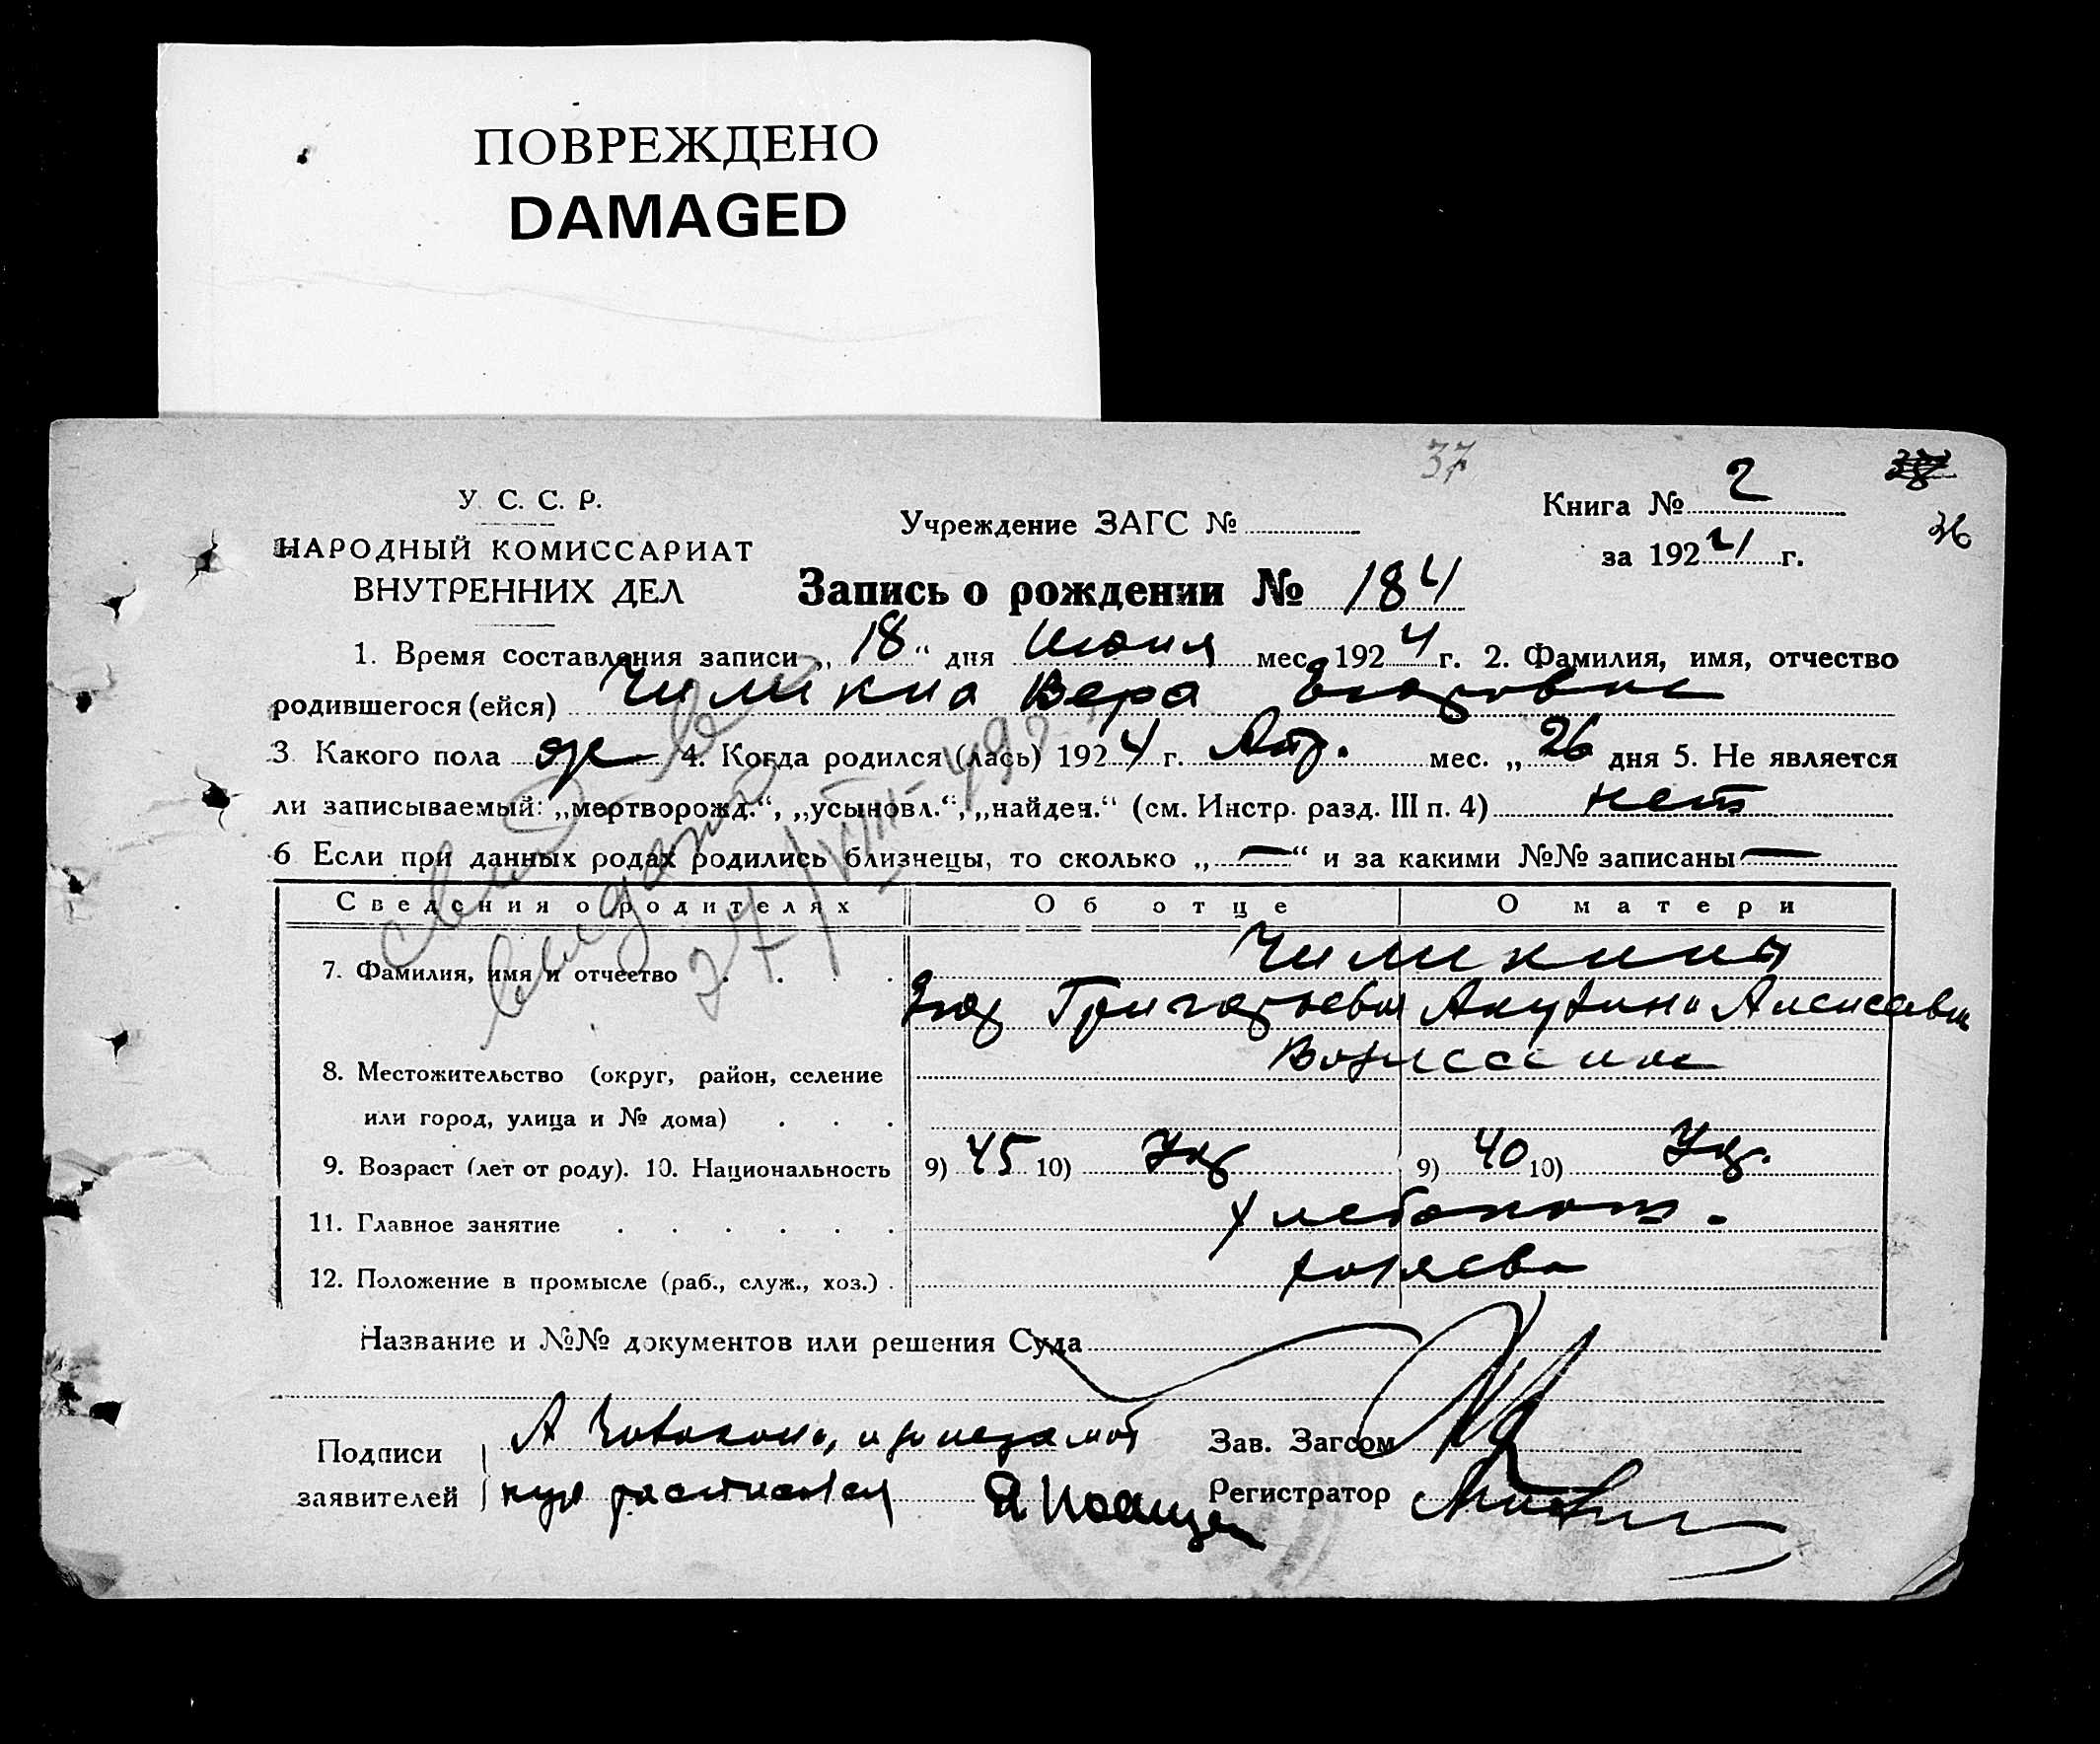 ПОВРЕЖДЕНО
DAMAGED
37
У. С. С. Р.
НАРОДНЫЙ КОМИССАРИАТ
ВНУТРЕННИХ ДЕЛ
Учреждение ЗАГС №
Книга № 2
36
за 1924 г.
Запись о рождении № 184
1. Время составления записи „ 18 “ дня Июня мес. 1924 г. 2. Фамилия, имя, отчество
родившегося (ейся) Чиликина Вера Егоровна
3. Какого пола ж 4. Когда родился (лась) 1924 г. Апр. мес. „ 26 дня 5. Не является
ли записываемый: „мертворожд.“, „усыновл.“, „найден.“ (см. Инстр. разд. III п. 4) нет
6 Если при данных родах родились близнецы, то сколько „ — “ и за какими №№ записаны —
выдано
27/VIII-
Сведения о родителях Об отце О матери
7. Фамилия, имя и отчество Чиликины
Егор Григорьевич Акулина Алексеевна
8. Местожительство (округ, район, селение
или город, улица и № дома)
9. Возраст (лет от роду). 10. Национальность 9) 45 10) Укр 9) 40 10) Укр.
11. Главное занятие Хлебопаш.
12. Положение в промысле (раб., служ., хоз.) хозяева
Название и №№ документов или решения Суда
Подписи
заявителей расписался
Зав. Загсом
Регистратор